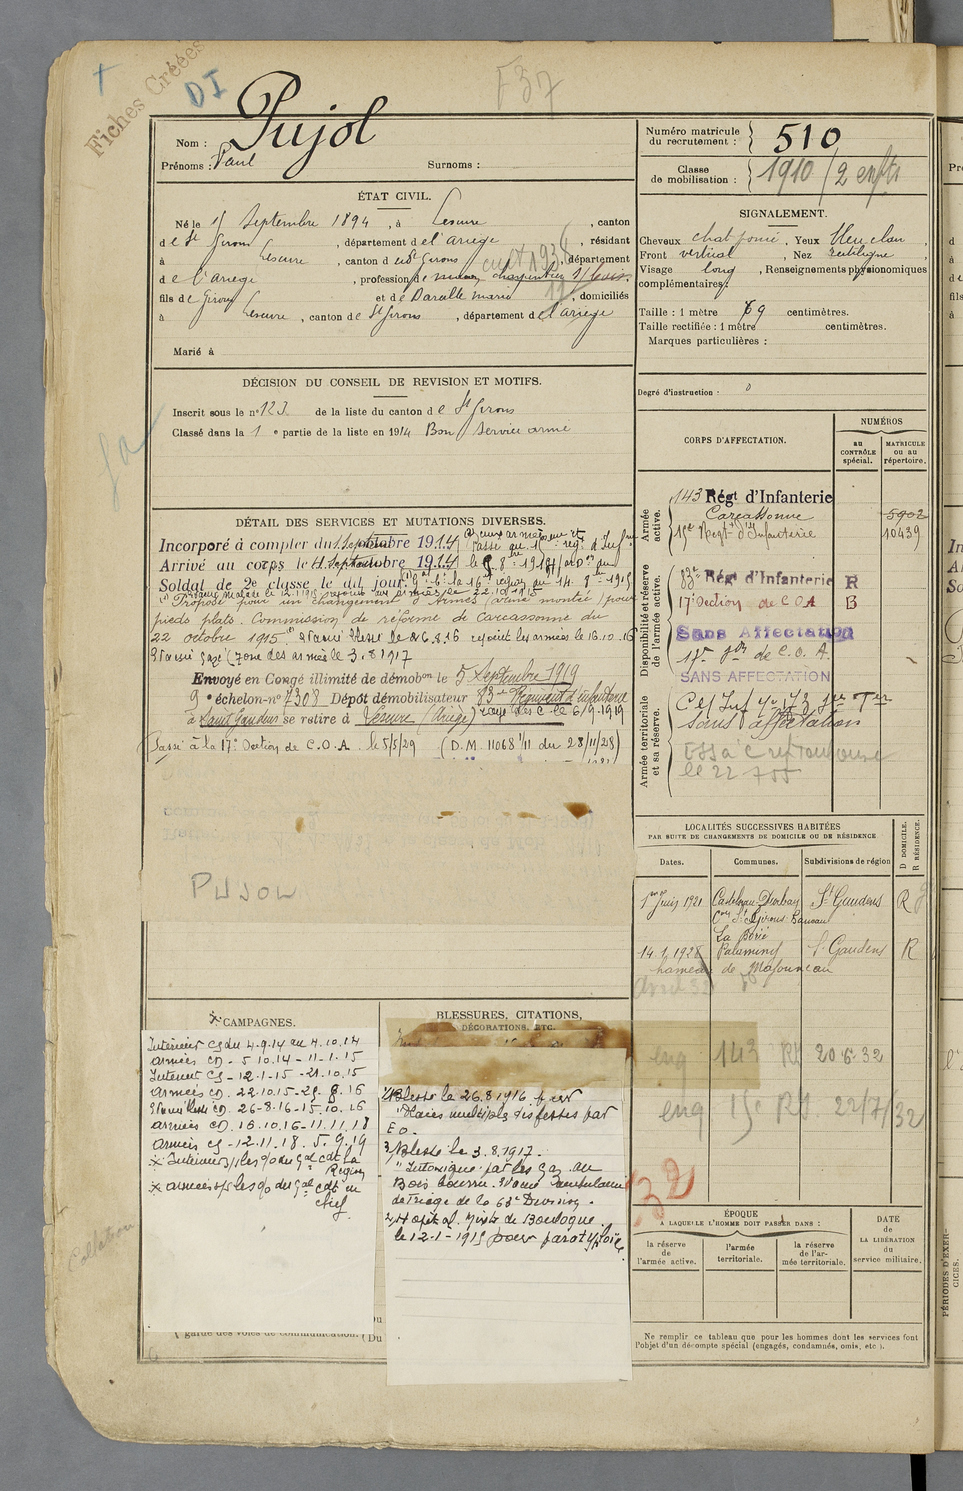 Fiches Créées
DI
F37
Nom : Pujol
Prénoms : Paul Surnoms :
ÉTAT CIVIL.
Né le 15 Septembre 1894, à Lescure, canton
de St Girons, département de l'Ariège, résidant
à Lescure, canton de St Girons, département
de l'Ariège, profession de
fils de Girons et de Daraille Marie, domiciliés
à Lescure, canton de St Girons, département de l'Ariège
Marié à
DÉCISION DU CONSEIL DE REVISION ET MOTIFS.
Inscrit sous le n° 123 de la liste du canton de St Girons
Classé dans la 1e partie de la liste en 1914 Bon service armé
DÉTAIL DES SERVICES ET MUTATIONS DIVERSES.
Incorporé à compter du Septembre 1914
Arrivé au corps le Septembre 1914
Soldat de 2e classe le dit jour
Proposé pour un changement d'armes (arme montée) pour
pieds plats. Commission de réforme de Carcassonne du
22 octobre 1915. Evacué blessé le 26.8.16 rejoint les armées le 16.10.16
Evacué gazé (zone des armées le 3.8.1917
Envoyé en Congé illimité de démobon le 5 Septembre 1919
9e échelon-n° 7308 Dépôt démobilisateur 83e Régiment d'infanterie
à Saint Gaudens se retire à Lescure (Ariège) rayé des C. le 6/9.1919
Passé à la 17e Section de C.O.A. le 5/5/29 (D.M. 11068 1/11 du 28/11/28)
PUJOL
CAMPAGNES.
Intérieur CS du 4.9.14 au 4.10.14
Armées CD - 5.10.14 - 11-1-15
Intérieur CS - 12-1-15 - 21.10.15
Armées CD. 22.10.15 - 25.8.16
Evac. blessé CD. 26-8-16 - 15.10.16
Armées CD. 16.10.16 - 11.11.18
Armées CS - 12.11.18. 5.9.19
garde des voies de communication. (Du
BLESSURES, CITATIONS,
DÉCORATIONS, ETC.
1/ Blessé le 26.8.1916 p
Plaies multiples des fesses par
E O.
3/ Blessé le 3.8.1917.
"Intoxiqué par les gaz au
Bois Bourru. Evacué Ambulance
de Triage de la 63e Division.
2/ Hopital mixte de Boulogne
le 12-1-1915 pour paratyphoïde
Numéro matricule
du recrutement : 510
Classe
de mobilisation : 1910 / 2 enfts
SIGNALEMENT.
Cheveux chat foncé, Yeux bleu clair,
Front vertical, Nez rectiligne,
Visage long, Renseignements physionomiques
complémentaires :
Taille : 1 mètre 69 centimètres.
Taille rectifiée : 1 mètre centimètres.
Marques particulières :
Degré d'instruction : 0
CORPS D'AFFECTATION.
NUMÉROS
au
CONTRÔLE
spécial.
MATRICULE
ou au
répertoire.
Armée
active.
143 Régt d'Infanterie
Carcassonne 5902
15e Régt d'Infanterie 10439
Disponibilité et réserve
de l'armée active.
83e Régt d'Infanterie R
17e Section de C.O.A B
Sans Affectation
17e Son de C.O.A.
SANS AFFECTATION
Armée territoriale
et sa réserve.
Sans affectation
LOCALITÉS SUCCESSIVES HABITÉES
PAR SUITE DE CHANGEMENTS DE DOMICILE OU DE RÉSIDENCE
Dates.
Communes.
Subdivisions de région
D DOMICILE.
R RÉSIDENCE.
1er Juin 1921 Castelnau-Durban St Gaudens R
14.1.1928 Palaminy St Gaudens R
hameau de
143 RI 20.6.32
15e RI 22/7/32
32
ÉPOQUE
A LAQUELLE L'HOMME DOIT PASSER DANS :
la réserve
de
l'armée active.
l'armée
territoriale.
la réserve
de l'ar-
mée territoriale.
DATE
de
LA LIBÉRATION
du
service militaire.
Ne remplir ce tableau que pour les hommes dont les services font
l'objet d'un décompte spécial (engagés, condamnés, omis, etc.).
Collation
PÉRIODES D'EXER-
CICES.